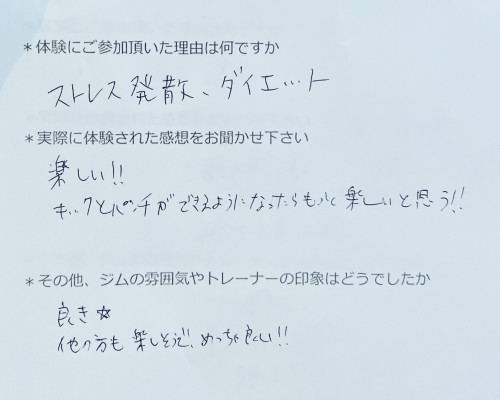 ＊体験にご参加頂いた理由は何ですか
ストレス発散、ダイエット
＊実際に体験された感想をお聞かせ下さい
楽しい!!
キックとパンチができるようになったらもっと楽しいと思う!!
＊その他、ジムの雰囲気やトレーナーの印象はどうでしたか
良き☆
他の方も楽しそうで、めっちゃ良い!!